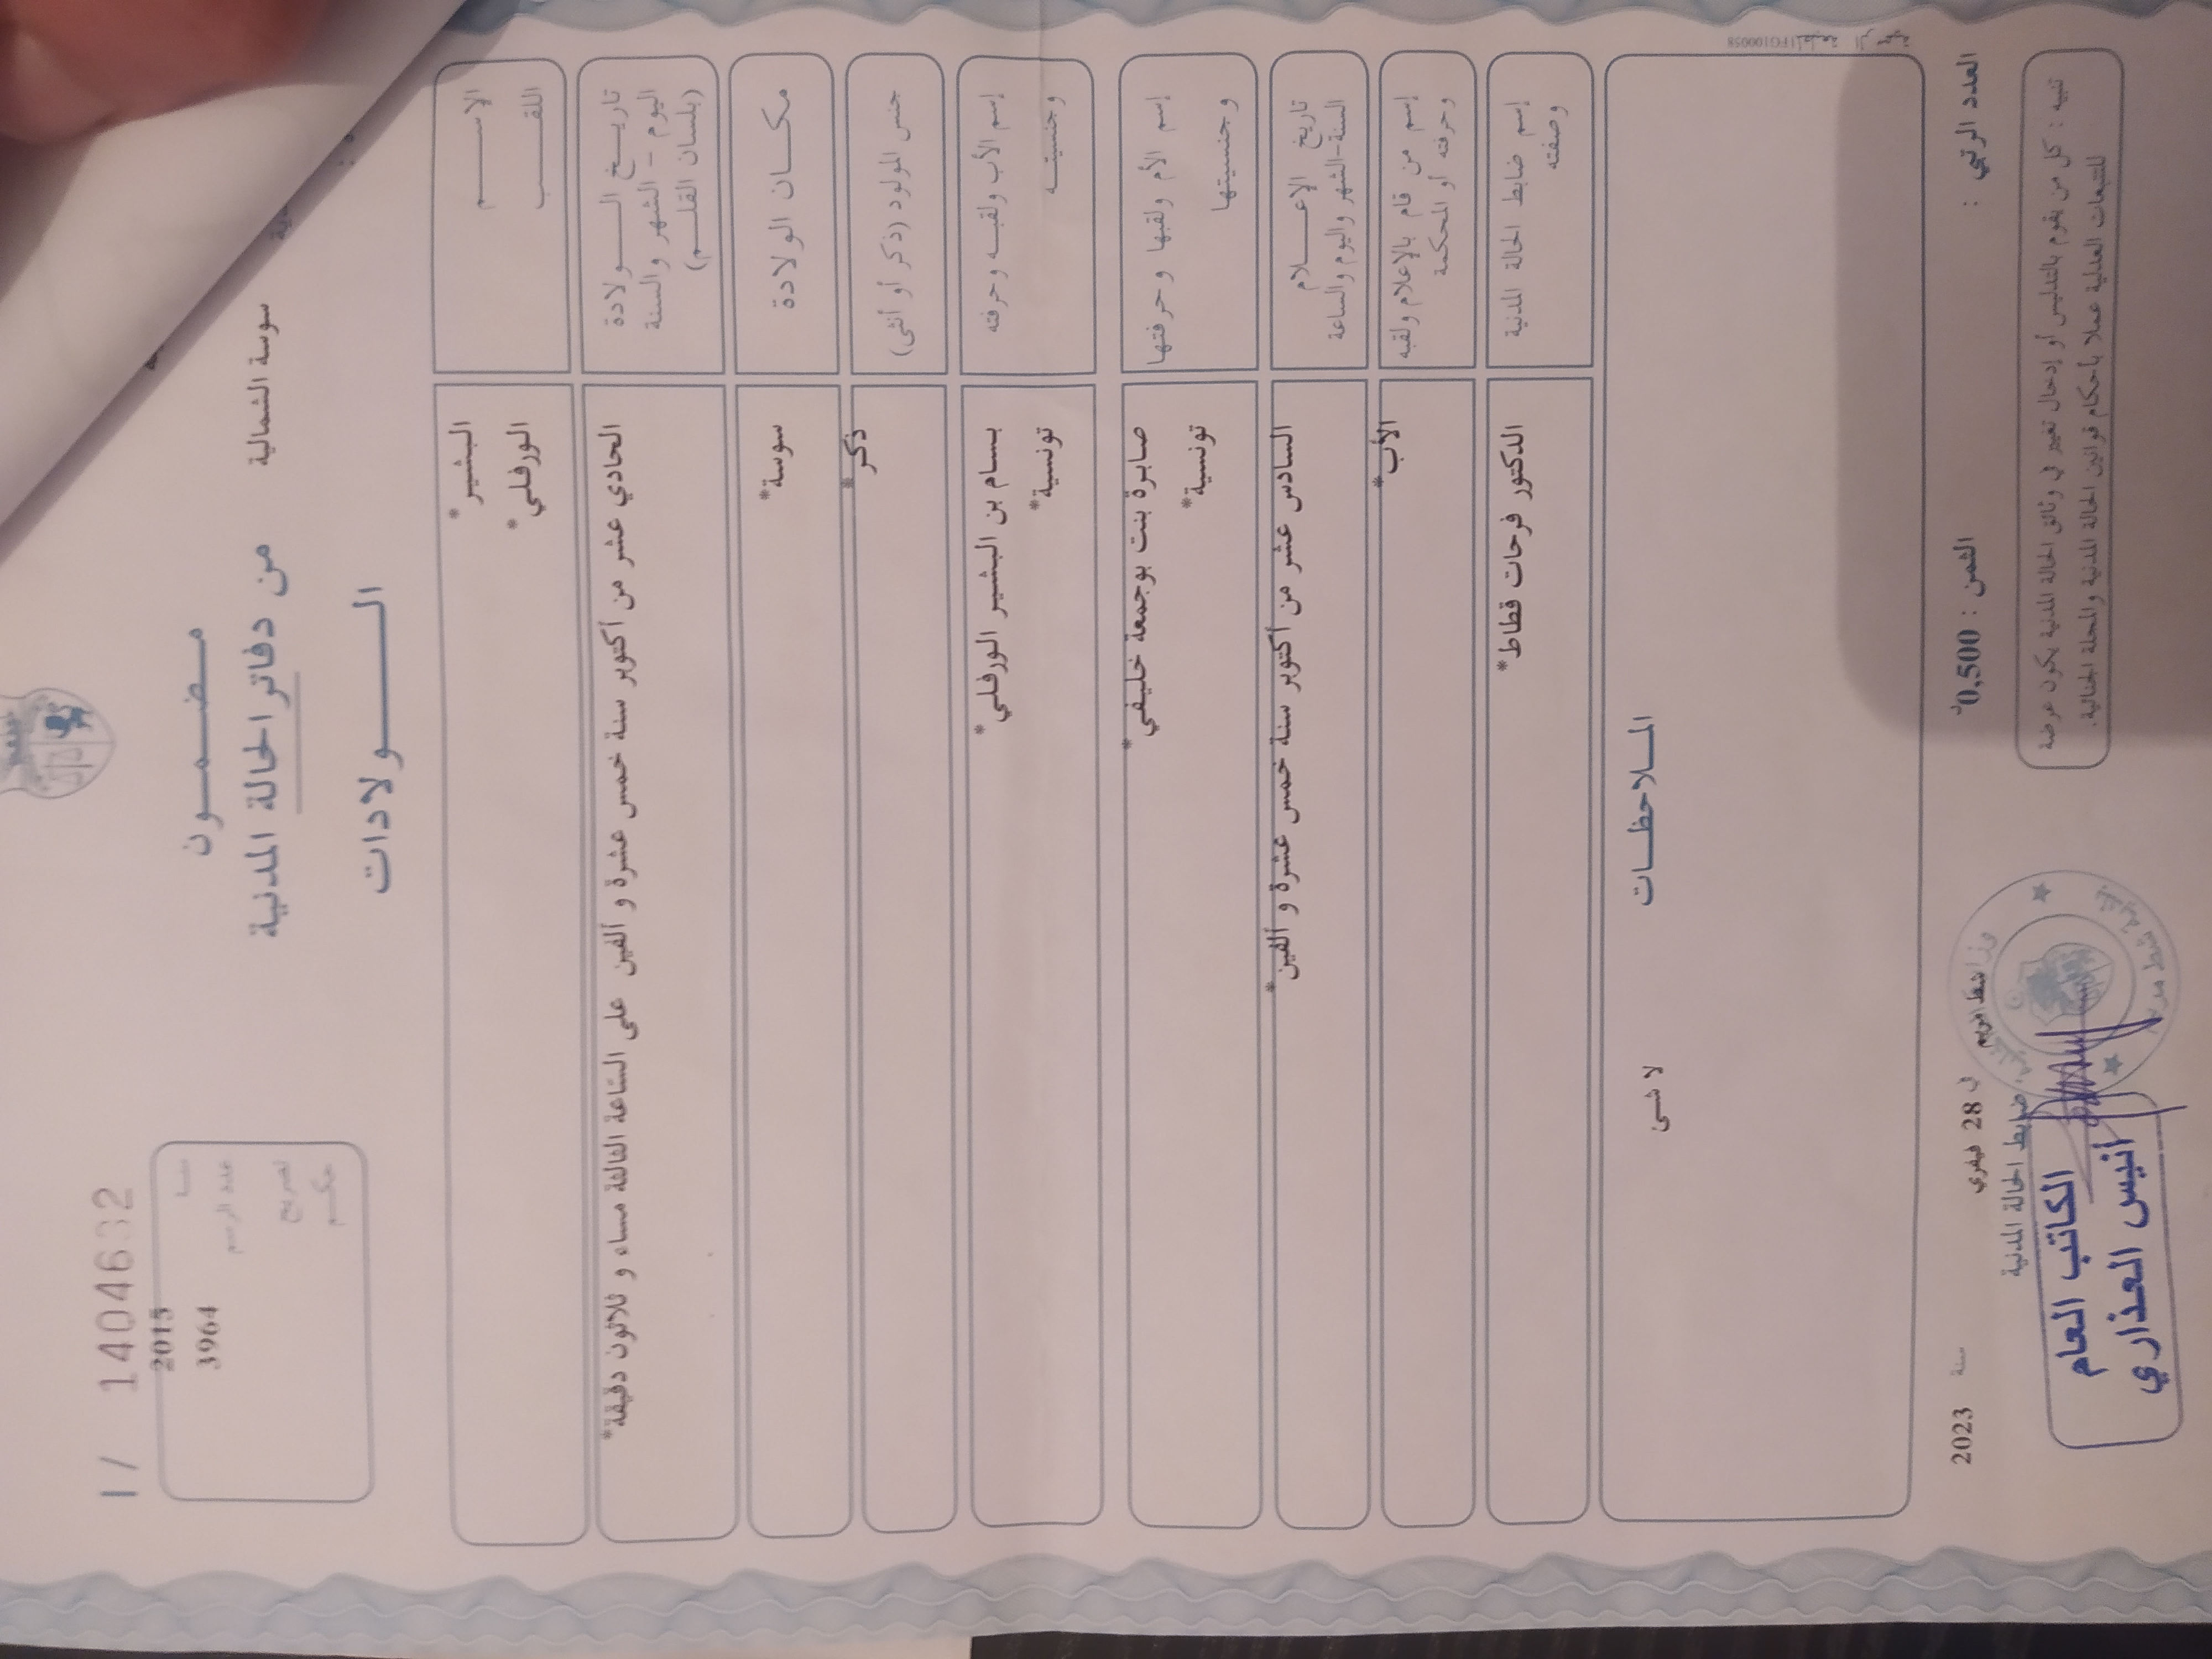 1 / 1404632
2015
سنة
3964
عدد الرسم
تصريح
حكم
سوسة الشمالية
مضمون
من دفاتر الحالة المدنية
الولادات
الإسم
البشير*
اللقب
الورفلي*
تاريخ الولادة
اليوم - الشهر والسنة
(بلسان القلم)
الحادي عشر من أكتوبر سنة خمس عشرة و ألفين على الساعة الثالثة مساء و ثلاثون دقيقة*
مكان الولادة
سوسة*
جنس المولود (ذكر أو أنثى)
ذكر*
إسم الأب ولقبه وحرفته
بسام بن البشير الورفلي*
وجنسيته
تونسية*
إسم الأم ولقبها وحرفتها
صابرة بنت بوجمعة خليفي*
وجنسيتها
تونسية*
تاريخ الإعلام
السنة-الشهر واليوم والساعة
السادس عشر من أكتوبر سنة خمس عشرة و ألفين*
إسم من قام بالإعلام ولقبه
وحرفته أو المحكمة
الأب*
إسم ضابط الحالة المدنية
وصفته
الدكتور فرحات قطاط*
الملاحظات
لا شئ
العدد الرتبي :
الثمن : 0,500د
شط مريم في 28 فيفري سنة 2023
ضابط الحالة المدنية
تنبيه : كل من يقوم بالتدليس أو إدخال تغيير في وثائق الحالة المدنية يكون عرضة
للتتبعات العدلية عملا بأحكام قوانين الحالة المدنية والمجلة الجنائية.
الكاتب العام
أنيس العذاري